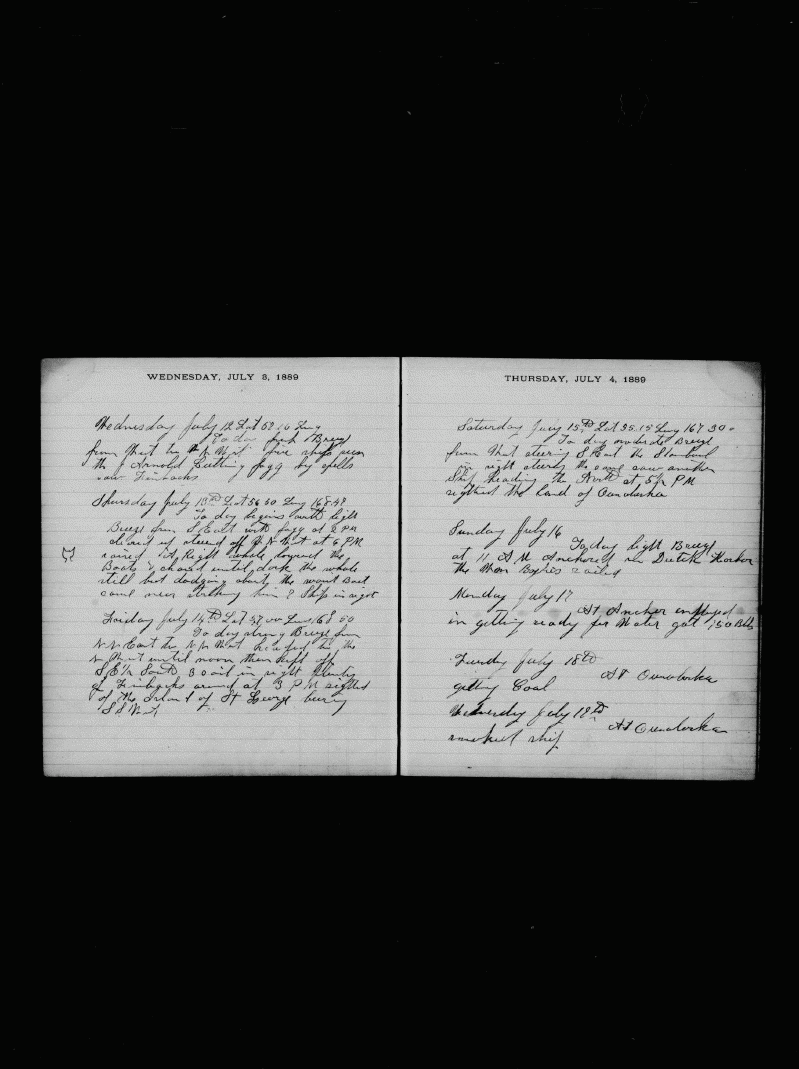 WEDNESDAY, JULY 3, 1889
Wednesday July 12 Lat 58 16 Long
To day fresh Breeze
from West by N West five ships seen
the J Arnold Cutting fogg by spells
saw Finbacks
Thursday July 13th Lat 56 50 Long 168.48
To day begins with light
Breeze from S East with fogg at 2 PM
cleared up steered off N West at 6 PM
raised A Right whale lowered the
Boats & chased until dark the whale
still but dodging about the waist Boat
came near striking him 2 Ship in sight
Friday July 14th Lat 57.00 Long 168 50
To day strong Breeze from
N N East to N N West headed to the
N West until noon then kept off
S E 1/2 South 3 sail in sight plenty
of Finbacks around at 3 PM sighted
of the Island of St George bearing
S S West
THURSDAY, JULY 4, 1889
Saturday July 15th Lat 55.15 Long 167 30
To day moderate Breeze
from West steering S East the Stamboul
in sight steering the same saw another
Ship heading the North at 5 1/2 PM
sighted the land of Ounalaska
Sunday July 16
To day light Breeze
at 11 A M Anchored in Dutch Harbor
the Thos Bayles sailed
Monday July 17
At Anchor employed
in getting ready for Water got 150 Bbls
Tuesday July 18th
At Ounalaska
getting Coal
Wednesday July 19th
At Ounalaska
smoked ship